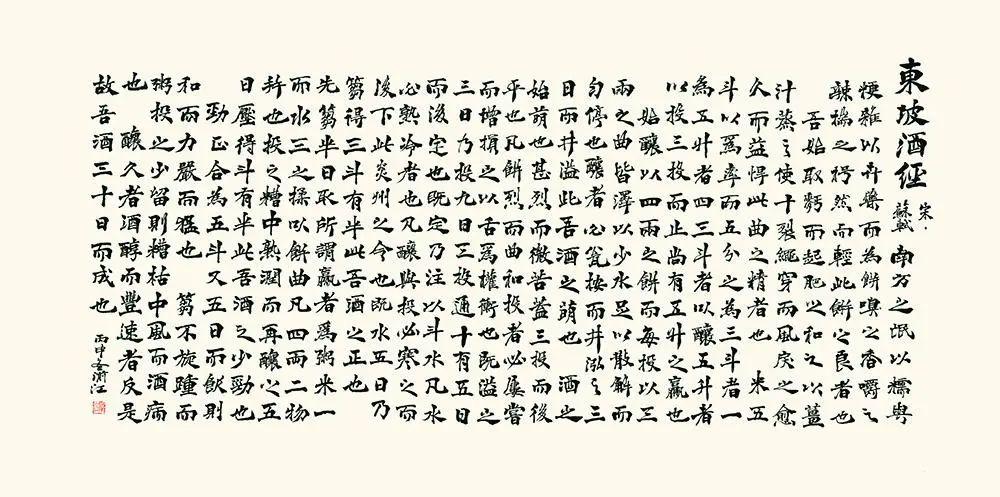 東坡酒經
宋·蘇軾
南方之氓以糯與
粳雜以卉藥而為餅嗅之香嚼之
辣揣之枵然而輕此餅之良者也
吾始取麪而起肥之和之以薑
汁蒸之使十裂繩穿而風戾之愈
久而益悍此曲之精者也 米五
斗以爲率而五分之為三斗者一
為五升者四三斗者以釀五升者
以投三投而止尚有五升之贏也
始釀以四兩之餅而每投以三
兩之曲皆澤以少水足以散解而
勻停也釀者必瓮按而井泓之三
日而井溢此吾酒之萌也 酒之
始萌也甚烈而微苦蓋三投而後
平也凡餅烈而曲和投者必屢嘗
而增損之以舌爲權衡也既溢之
三日乃投九日三投通十有五日
而後定也既定乃注以斗水凡水
必熟冷者也凡釀與投必寒之而
後下此炎州之令也既水五日乃
篘得三斗有半此吾酒之正也
先篘半日取所謂贏者爲粥米一
而水三之揉以餅曲凡四兩二物
并也投之糟中熟潤而再釀之五
日壓得斗有半此吾酒之少勁也
勁正合為五斗又五日而飲則
和而力嚴而猛也 篘不旋踵而
粥投之少留則糟枯中風而酒病
也 釀久者酒醇而豐速者反是
故吾酒三十日而成也
丙申 濟江